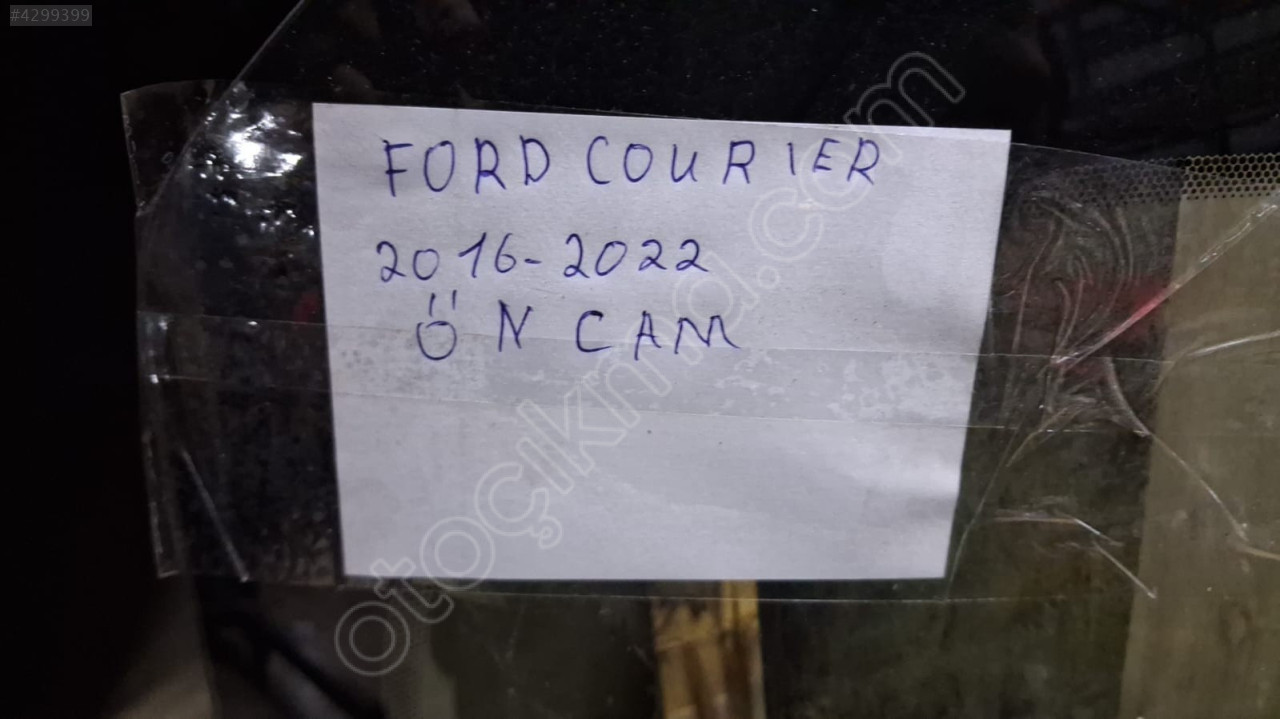 #4299399
FORD COURIER
2016-2022
ÖN CAM
otoçıkma.com